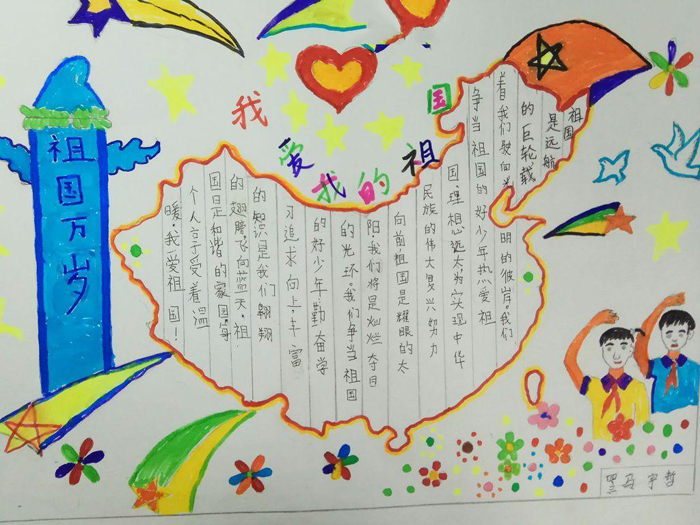 我爱我的祖国
祖国万岁
祖国
是远航
的巨轮载
着我们驶向光
明的彼岸,我们
争当祖国的好少年热爱祖
国理想远大,为实现中华
民族的伟大复兴努力
向前祖国是耀眼的太
阳我们将是灿烂夺目
的光环。我们争当祖国
的好少年勤奋学
习追求向上,丰富
的知识是我们翱翔
的翅膀,飞向蓝天。祖
国是和谐的家园,每
个人享受着温
暖,我爱祖国!